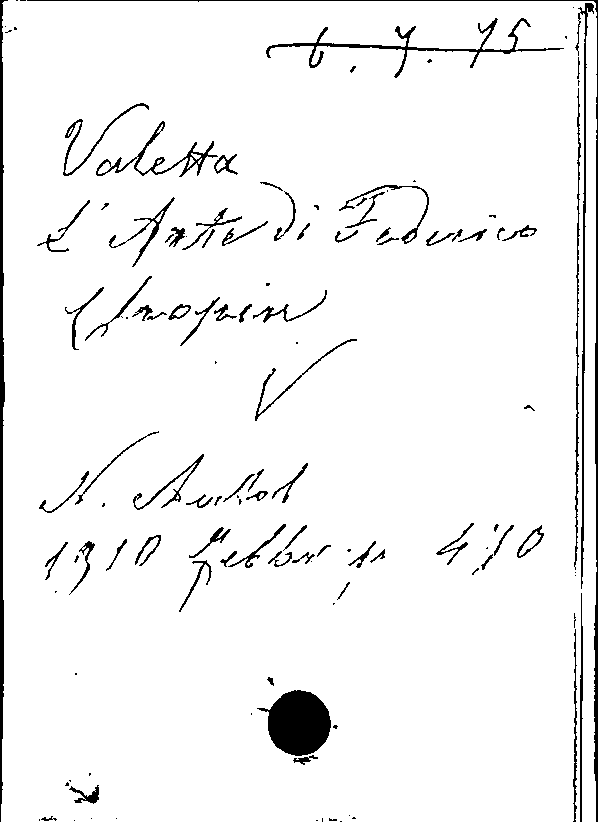 6. 7. 75
Valetta
L'Arte di Federico
Chopin
V
N. Antol
1910 Febbr. p. 470